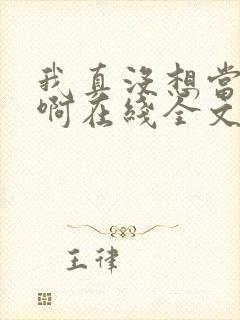 我真没想当
啊在线全文
王律